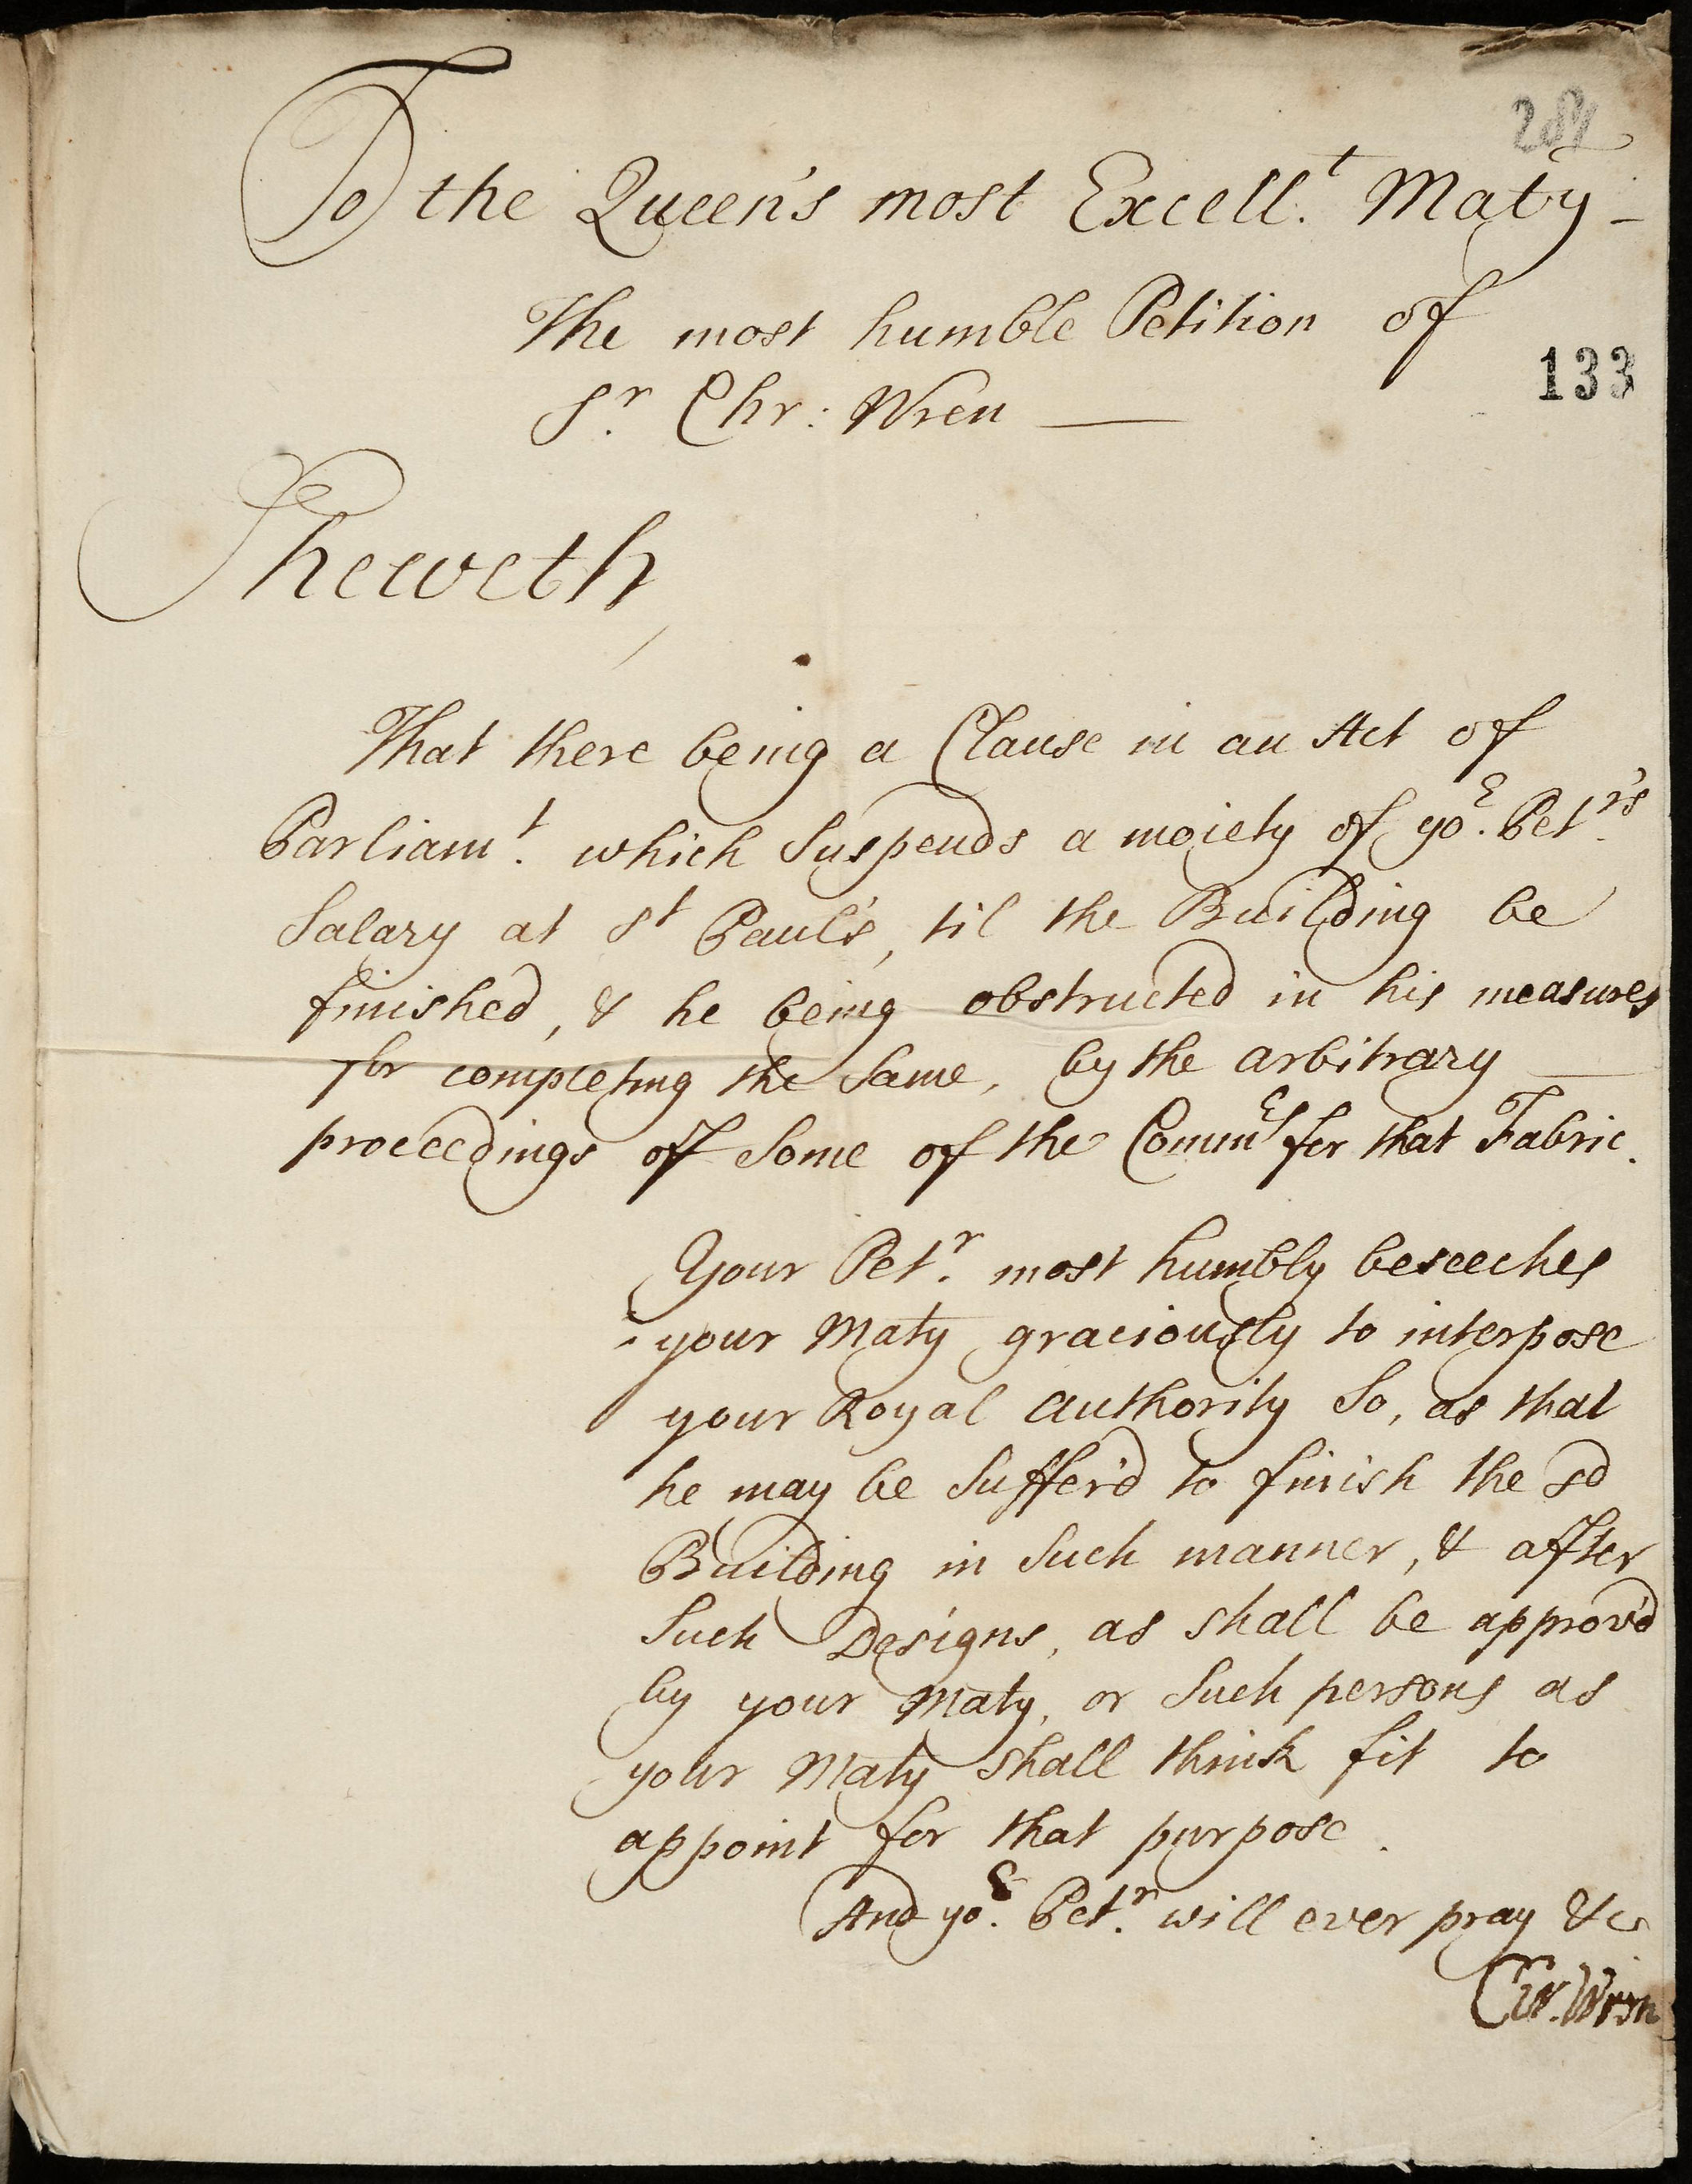 284
To the Queen's most Excell.t Maty
The most humble Petition of
133
Sr. Chr: Wren
Sheweth,
That there being a Clause in an Act of
Parliamt. which Suspends a moiety of yor. Petrs.
Salary at St Paul's, til the Building be
finished, & he being obstructed in his measures
for completing the Same, by the arbitrary
proceedings of Some of the Commrs for that Fabric.
Your Petr. most humbly beseeches
your Maty graciously to interpose
your Royal authority So, as that
he may be Suffer'd to finish the sd
Building in Such manner, & after
Such Designs, as shall be approv'd
by your Maty, or Such persons as
your Maty shall think fit to
appoint for that purpose.
And yor. Petr. will ever pray &c
Chr. Wren